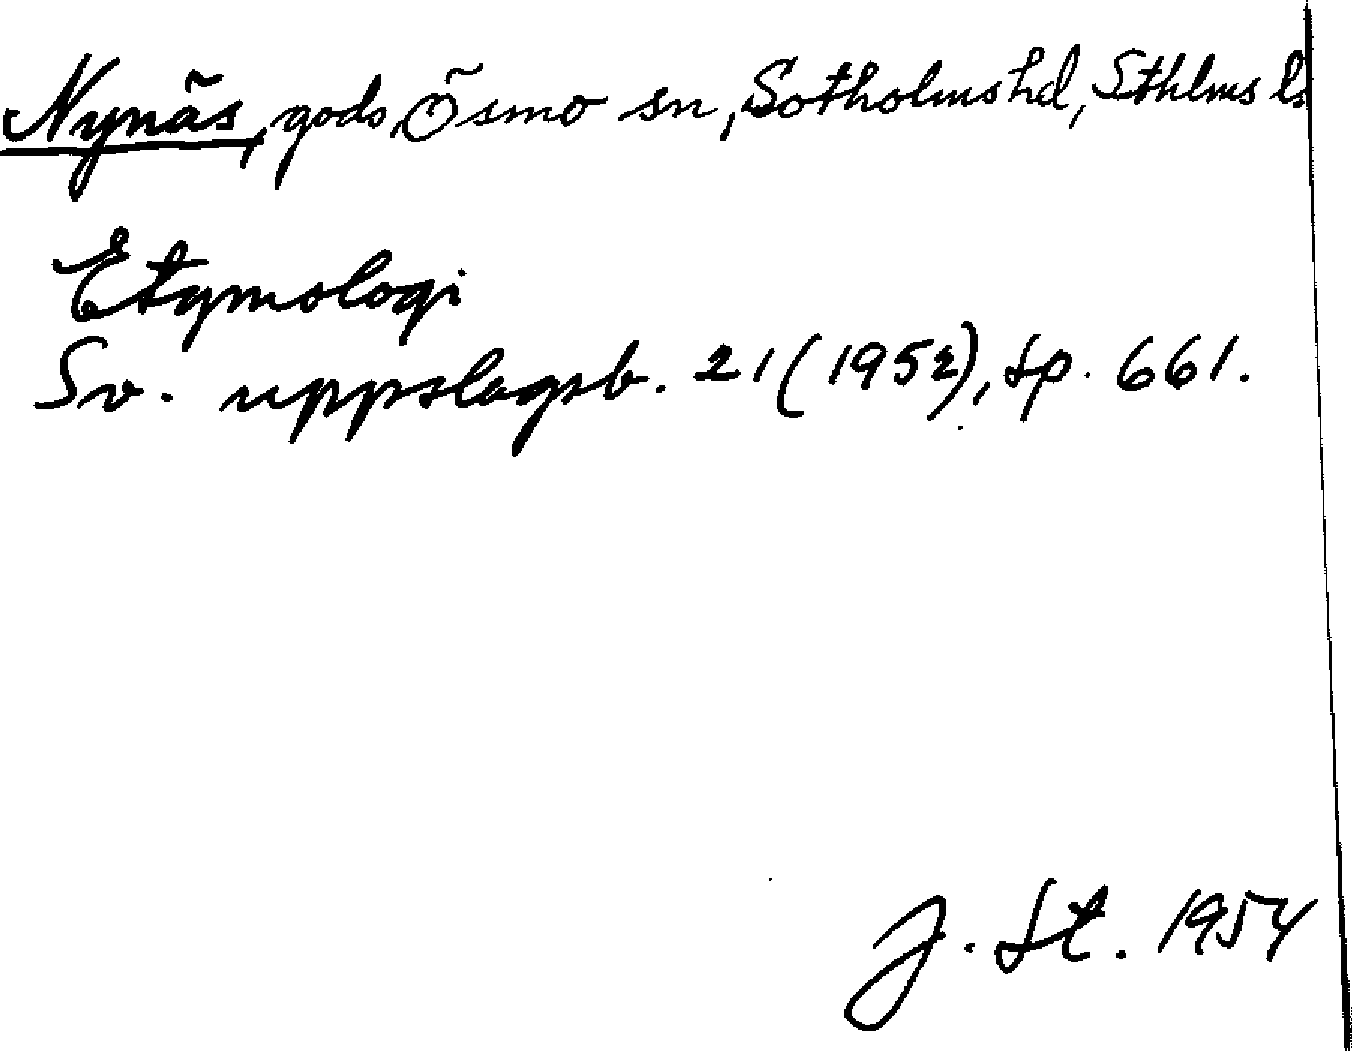 Nynäs, gods, Ösmo sn, Sotholms hd, Sthlms l
Etymologi
Sv. uppslagsb. 21 (1952), sp. 661.
J. St. 1954